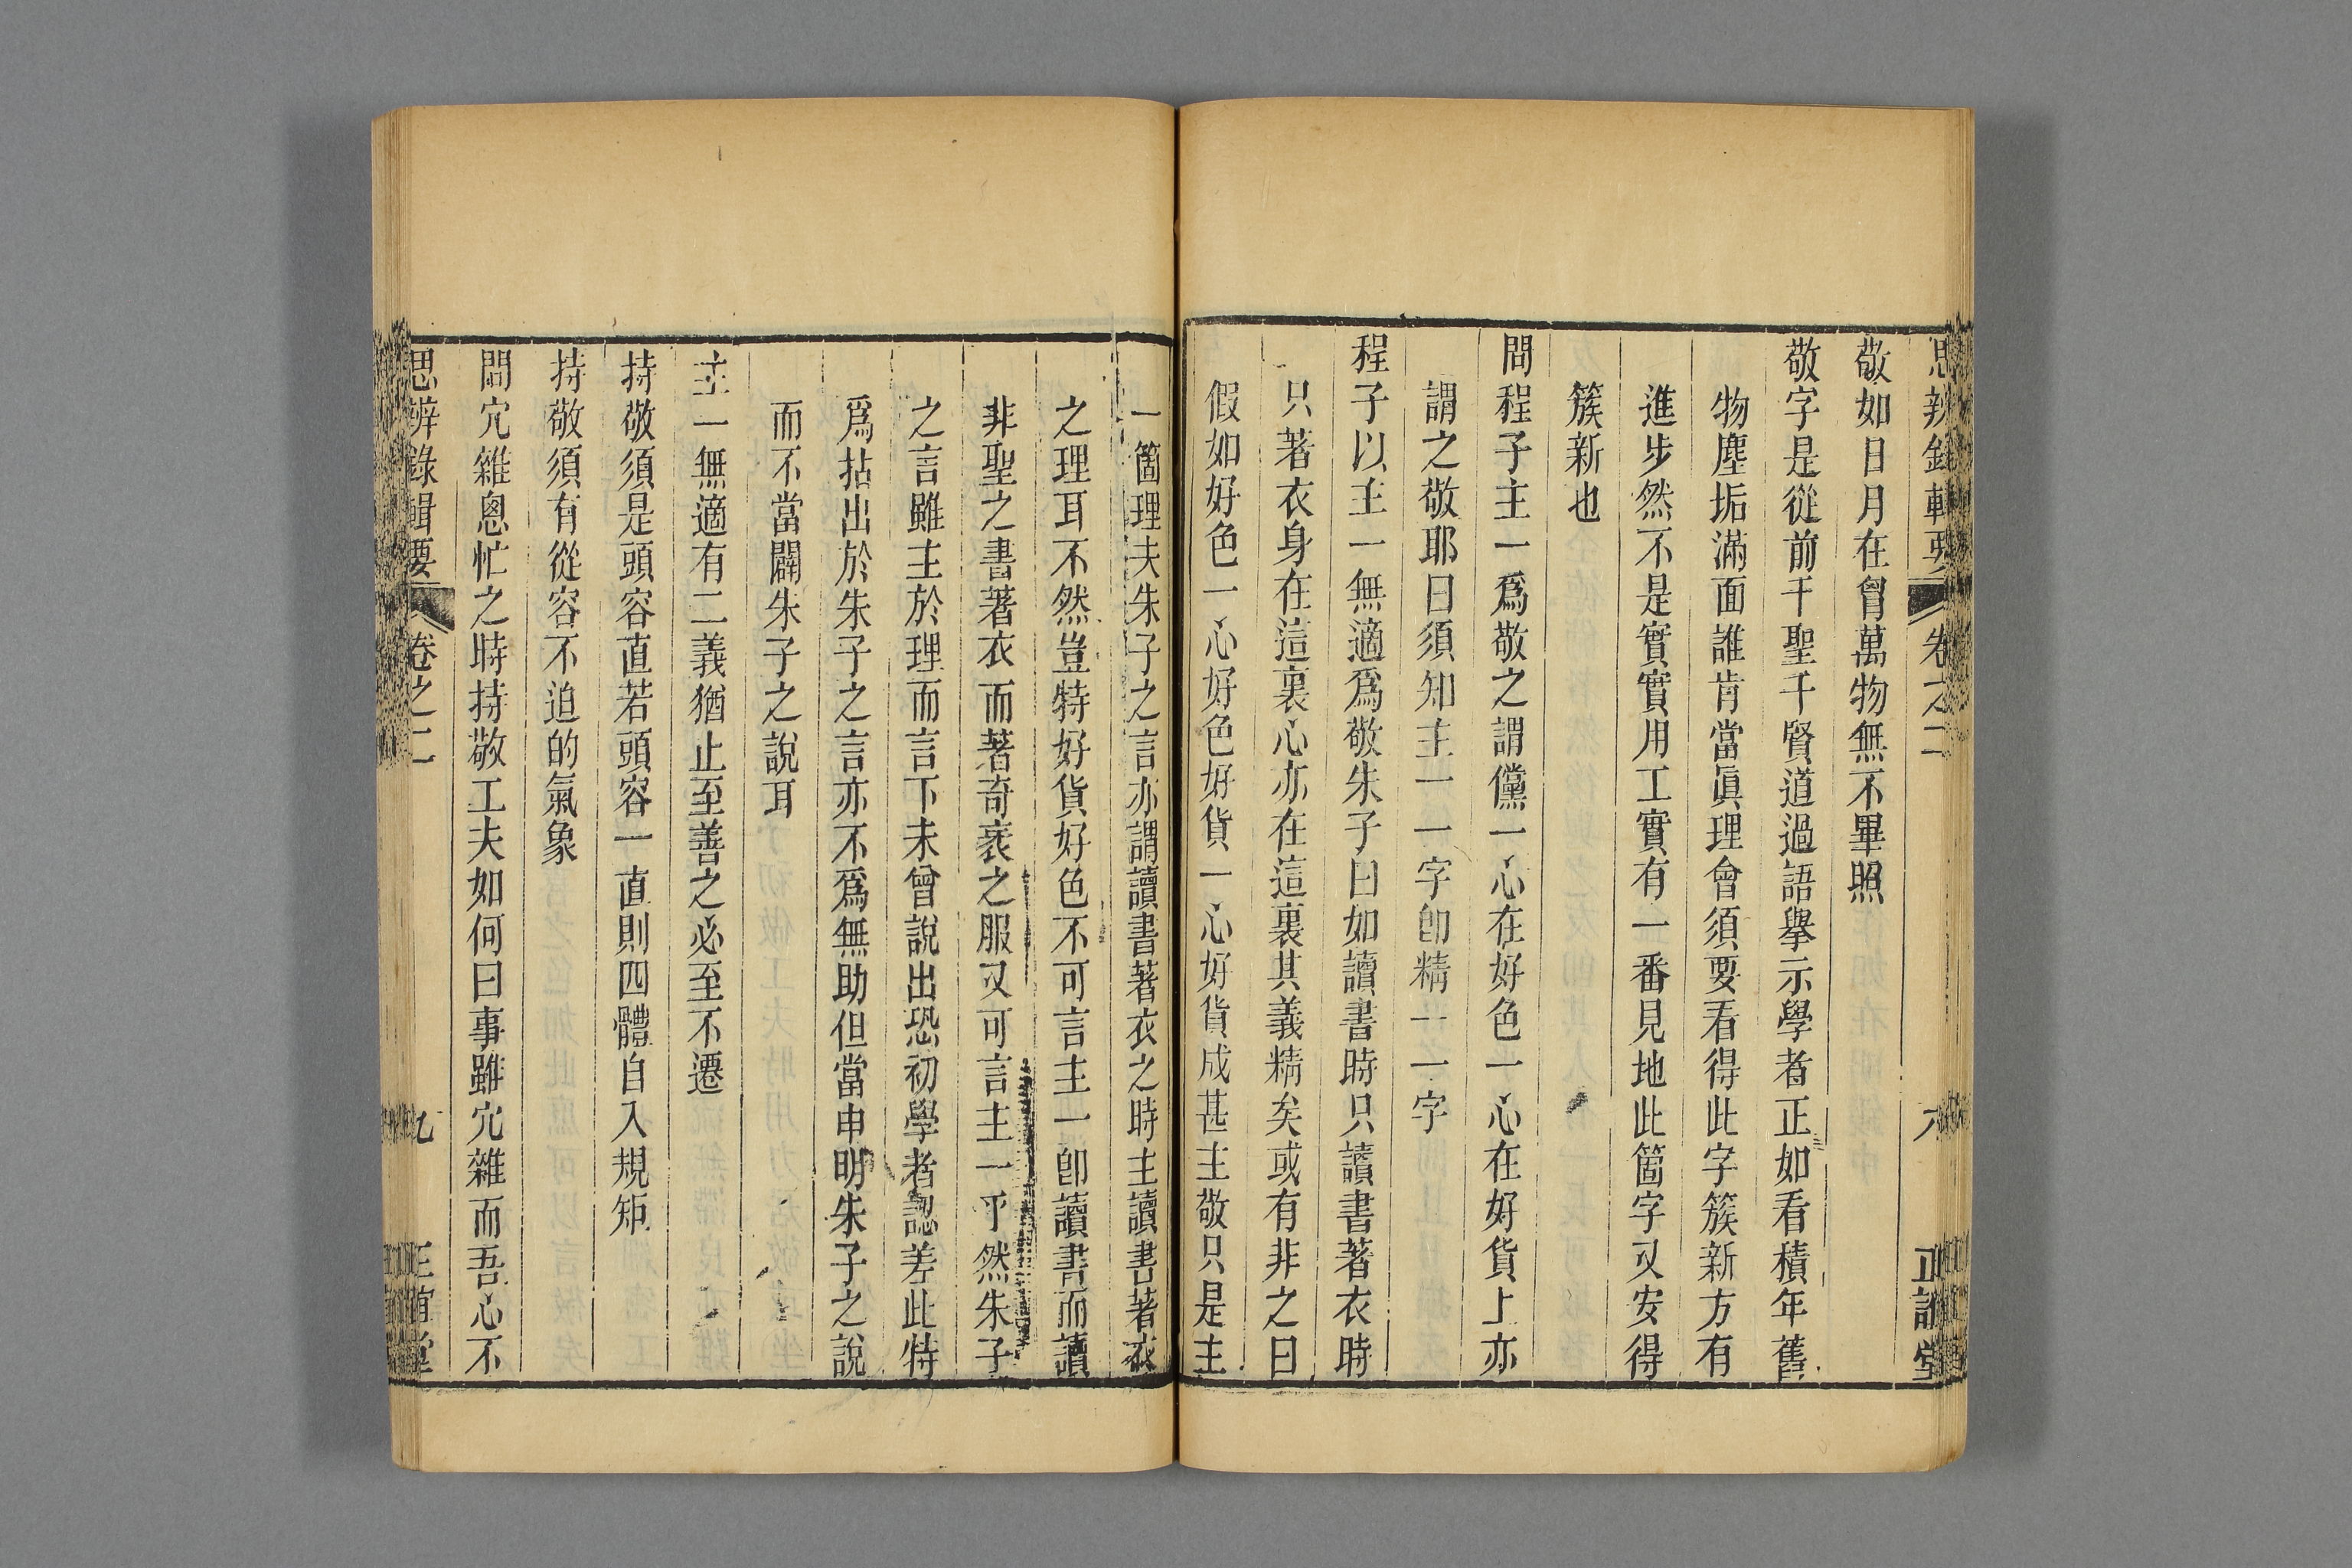 思辨錄輯要 卷之二 八 正誼堂
敬如日月在胷萬物無不畢照
敬字是從前千聖千賢道過語擧示學者正如看積年舊
物塵垢滿面誰肯當眞理會須要看得此字簇新方有
進步然不是實實用工實有一番見地此箇字又安得
簇新也
問程子主一爲敬之謂儻一心在好色一心在好貨上亦
謂之敬耶曰須知主一一字卽精一一字
程子以主一無適爲敬朱子曰如讀書時只讀書著衣時
只著衣身在這裏心亦在這裏其義精矣或有非之曰
假如好色一心好色好貨一心好貨成甚主敬只是主
一箇理夫朱子之言亦謂讀書著衣之時主讀書著衣
之理耳不然豈特好貨好色不可言主一卽讀書而讀
非聖之書著衣而著奇衺之服又可言主一乎然朱子
之言雖主於理而言下未曾說出恐初學者認差此特
爲拈出於朱子之言亦不爲無助但當申明朱子之說
而不當闢朱子之說耳
主一無適有二義猶止至善之必至不遷
持敬須是頭容直若頭容一直則四體自入規矩
持敬須有從容不迫的氣象
問宂雜悤忙之時持敬工夫如何曰事雖宂雜而吾心不
思辨錄輯要 卷之二 九 正誼堂